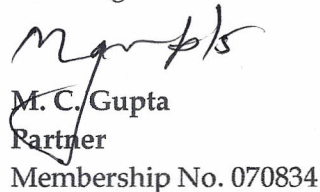 M. C. Gupta
Partner
Membership No. 070834